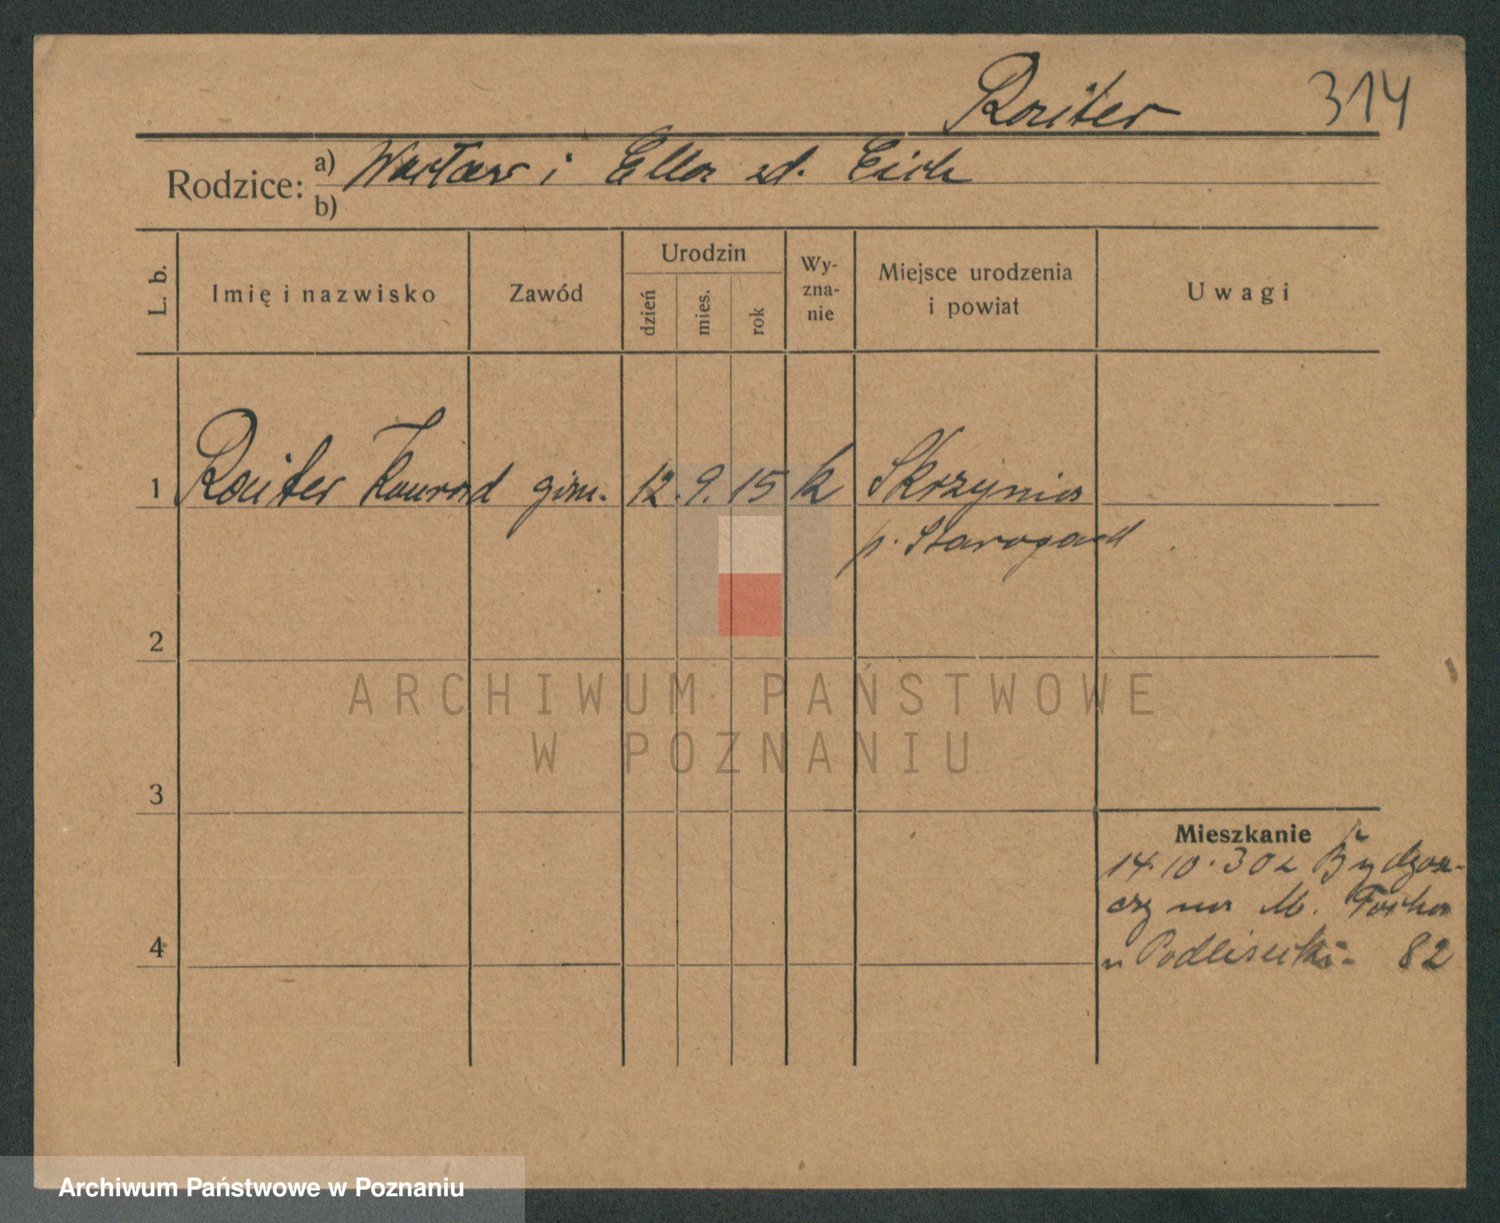 Roiter 314
Rodzice: a) Wacław i Ella zd. Eich
b)
L. b. Imię i nazwisko Zawód Urodzin dzień mies. rok Wy-zna-nie Miejsce urodzenia i powiat Uwagi
1 Roiter Konrad gimn. 12. 9. 15 k Skrzynia
p. Starogard
2
ARCHIWUM PAŃSTWOWE
W POZNANIU
3
Mieszkanie
14.10.30 z Bydgosz-
czy na M. Focha
u Podlisecki 82
4
Archiwum Państwowe w Poznaniu